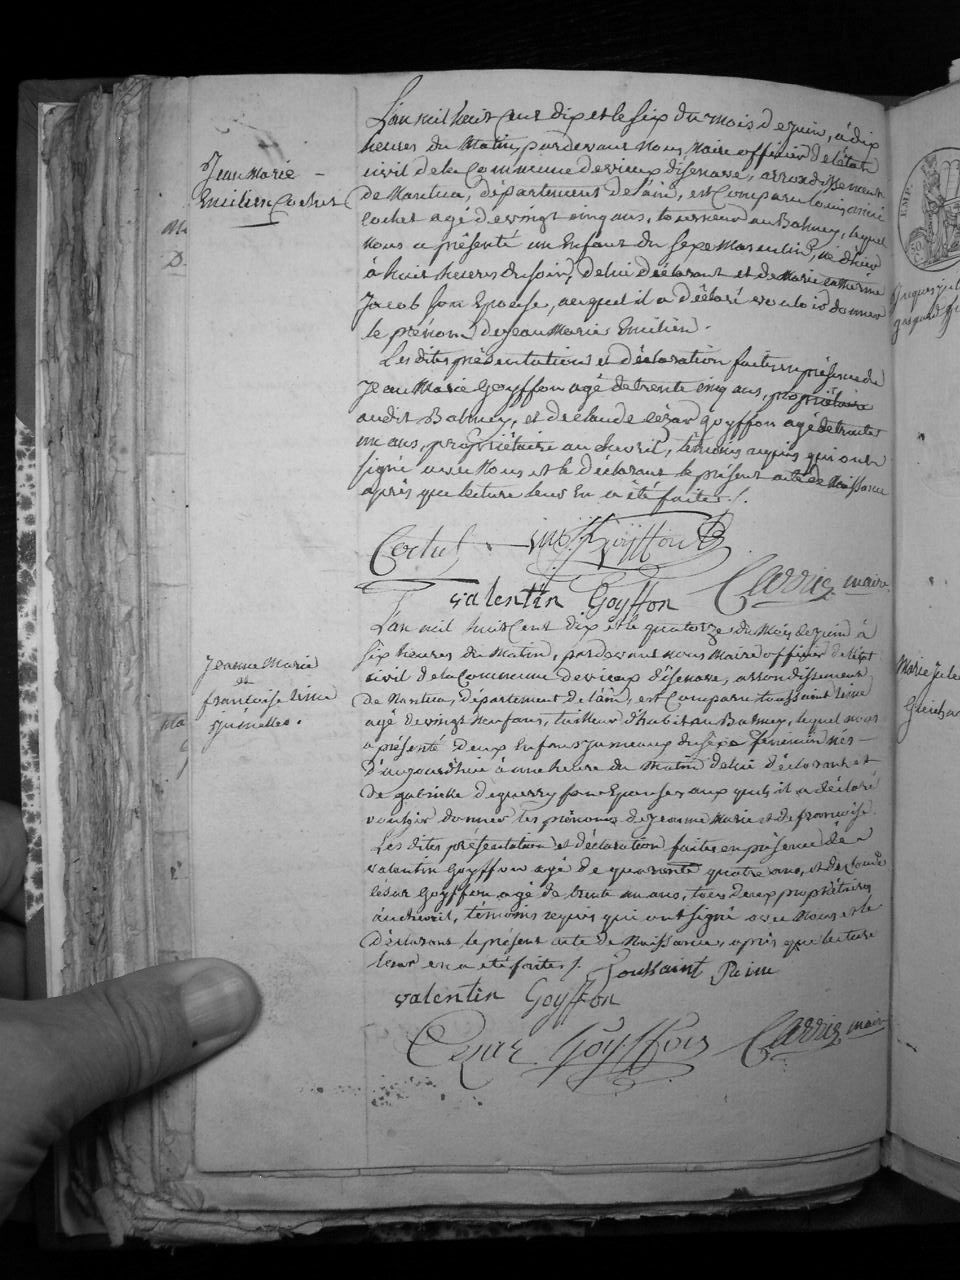 Jean Marie
Emilien Cochet
L'an mil huit Cent dix et le six du mois de juin, à dix
heures du Matin, pardevant nous Maire officier de l'état
civil de la Commune de vieux d'isenave, arrondissement
de Nantua, département de l'ain, est Comparu
Cochet agé de vingt cinq ans, au Balmey, lequel
Nous a présenté un Enfant du sexe Masculin, né d'hier
à huit heures du soir, de lui déclarant et de Marie catherine
Jacob son Epouse, auquel il a déclaré vouloir donner
le prénom de Jean Marie Emilien.
Les dites présentation et déclaration faites en présence de
Jean Marie Goyffon agé de trente cinq ans, propriétaire
audit Balmey, et de claude cézar goyffon agé de trente
un ans, propriétaire au , témoins requis qui ont
signé avec Nous et le déclarant le présent acte de Naissance
après que lecture leur En a été faite ./.
Cochet Goyffon
valentin Goyffon Carrier maire
Jeanne Marie
et
françoise
Jumelles.
L'an mil huit Cent dix et le quatorze du Mois de juin à
six heures du Matin, pardevant nous Maire officier de l'état
civil de la Commune de vieux d'isenave, arrondissement
de Nantua, département de l'ain, est Comparu toussaint
agé de vingt neuf ans, tailleur d'habit au Balmey, lequel nous
a présenté deux Enfans Jumeaux du sexe féminin nés
d'aujourd'hui à une heure du Matin de lui déclarant et
de gabrielle deguerry son Epouse, aux quels il a déclaré
vouloir donner les prénoms de Jeanne Marie et de françoise.
Les dites présentation et déclaration faites en présence de
valentin Goyffon agé de quarente quatre ans, et de Claude
César Goyffon agé de trente un ans, tous deux propriétaires
, témoins requis qui ont signé avec Nous et le
déclarant le présent acte de Naissance, après que lecture
leur en a été faite ./. Toussaint
valentin Goyffon
César Goyffon Carrier maire